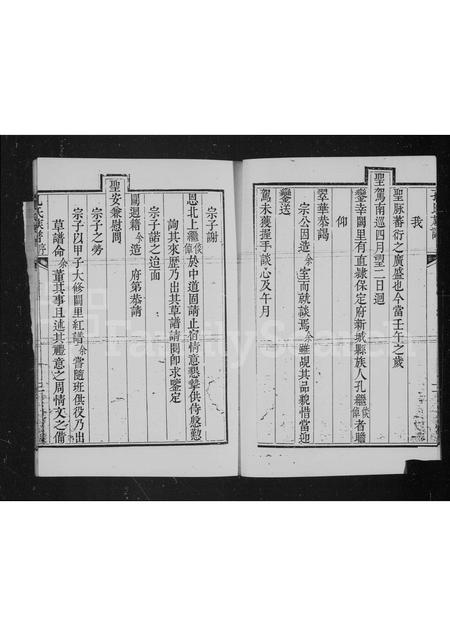 我
聖脉蕃衍之廣盛也今當壬午之歲
聖駕南巡四月望二日迴
鑾幸闕里有直隸保定府新城縣族人孔繼俊偉者瞻
仰
翠華恭謁
宗公因造余室而就談焉余雖覯其品貌惜當迎
鑾送
駕未獲握手談心及午月
宗子謝
恩北上繼俊偉於中道固請止宿情意懇摯供侍慇懃
詢其來歷乃出其草譜請閱卽求鑒定
宗子諾之迨面
闕迴籍余造 府第恭請
聖安兼慰問
宗子之勞
宗子以甲子大修闕里紅譜余嘗隨班供役乃出
草譜命余董其事且述其禮意之周情文之備
孔氏族譜 序